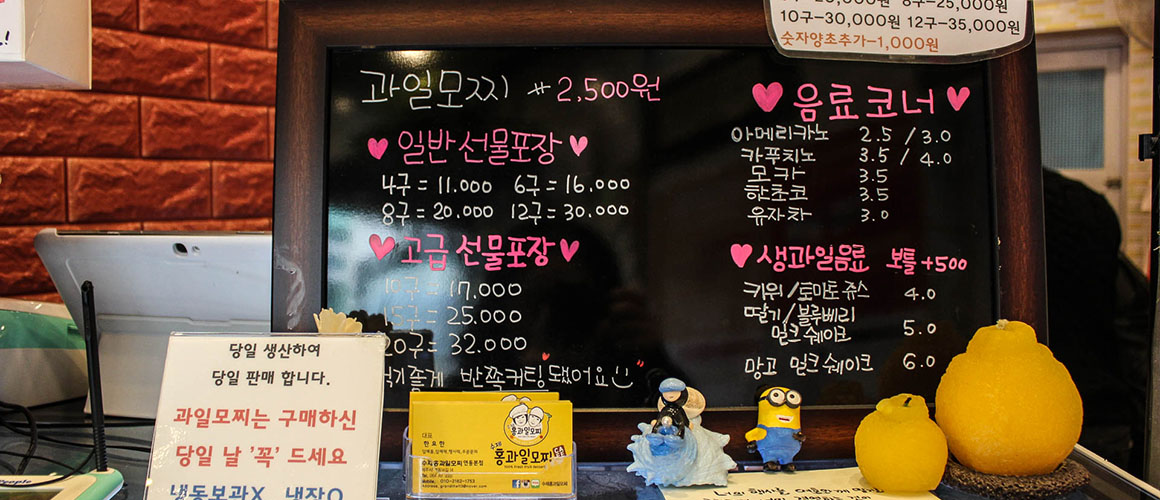 8구-25,000원
10구-30,000원 12구-35,000원
숫자양초추가-1,000원
과일모찌 # 2,500원
일반선물포장
4구=11.000 6구=16.000
8구=20.000 12구=30.000
고급선물포장
10구=17,000
15구=25.000
20구=32.000
반쪽커팅됐어요
음료코너
아메리카노 2.5 / 3.0
카푸치노 3.5 / 4.0
모카 3.5
핫초코 3.5
유자차 3.0
생과일음료 보틀+500
키위/토마토쥬스 4.0
딸기/블루베리
밀크쉐이크 5.0
망고 밀크쉐이크 6.0
당일 생산하여
당일 판매 합니다.
과일모찌는 구매하신
당일 날 '꼭' 드세요
냉동보관X 냉장O
대표
한요한
수제홍과일모찌연동본점
010-2162-1753
수제
홍과일모찌
수제홍과일모찌